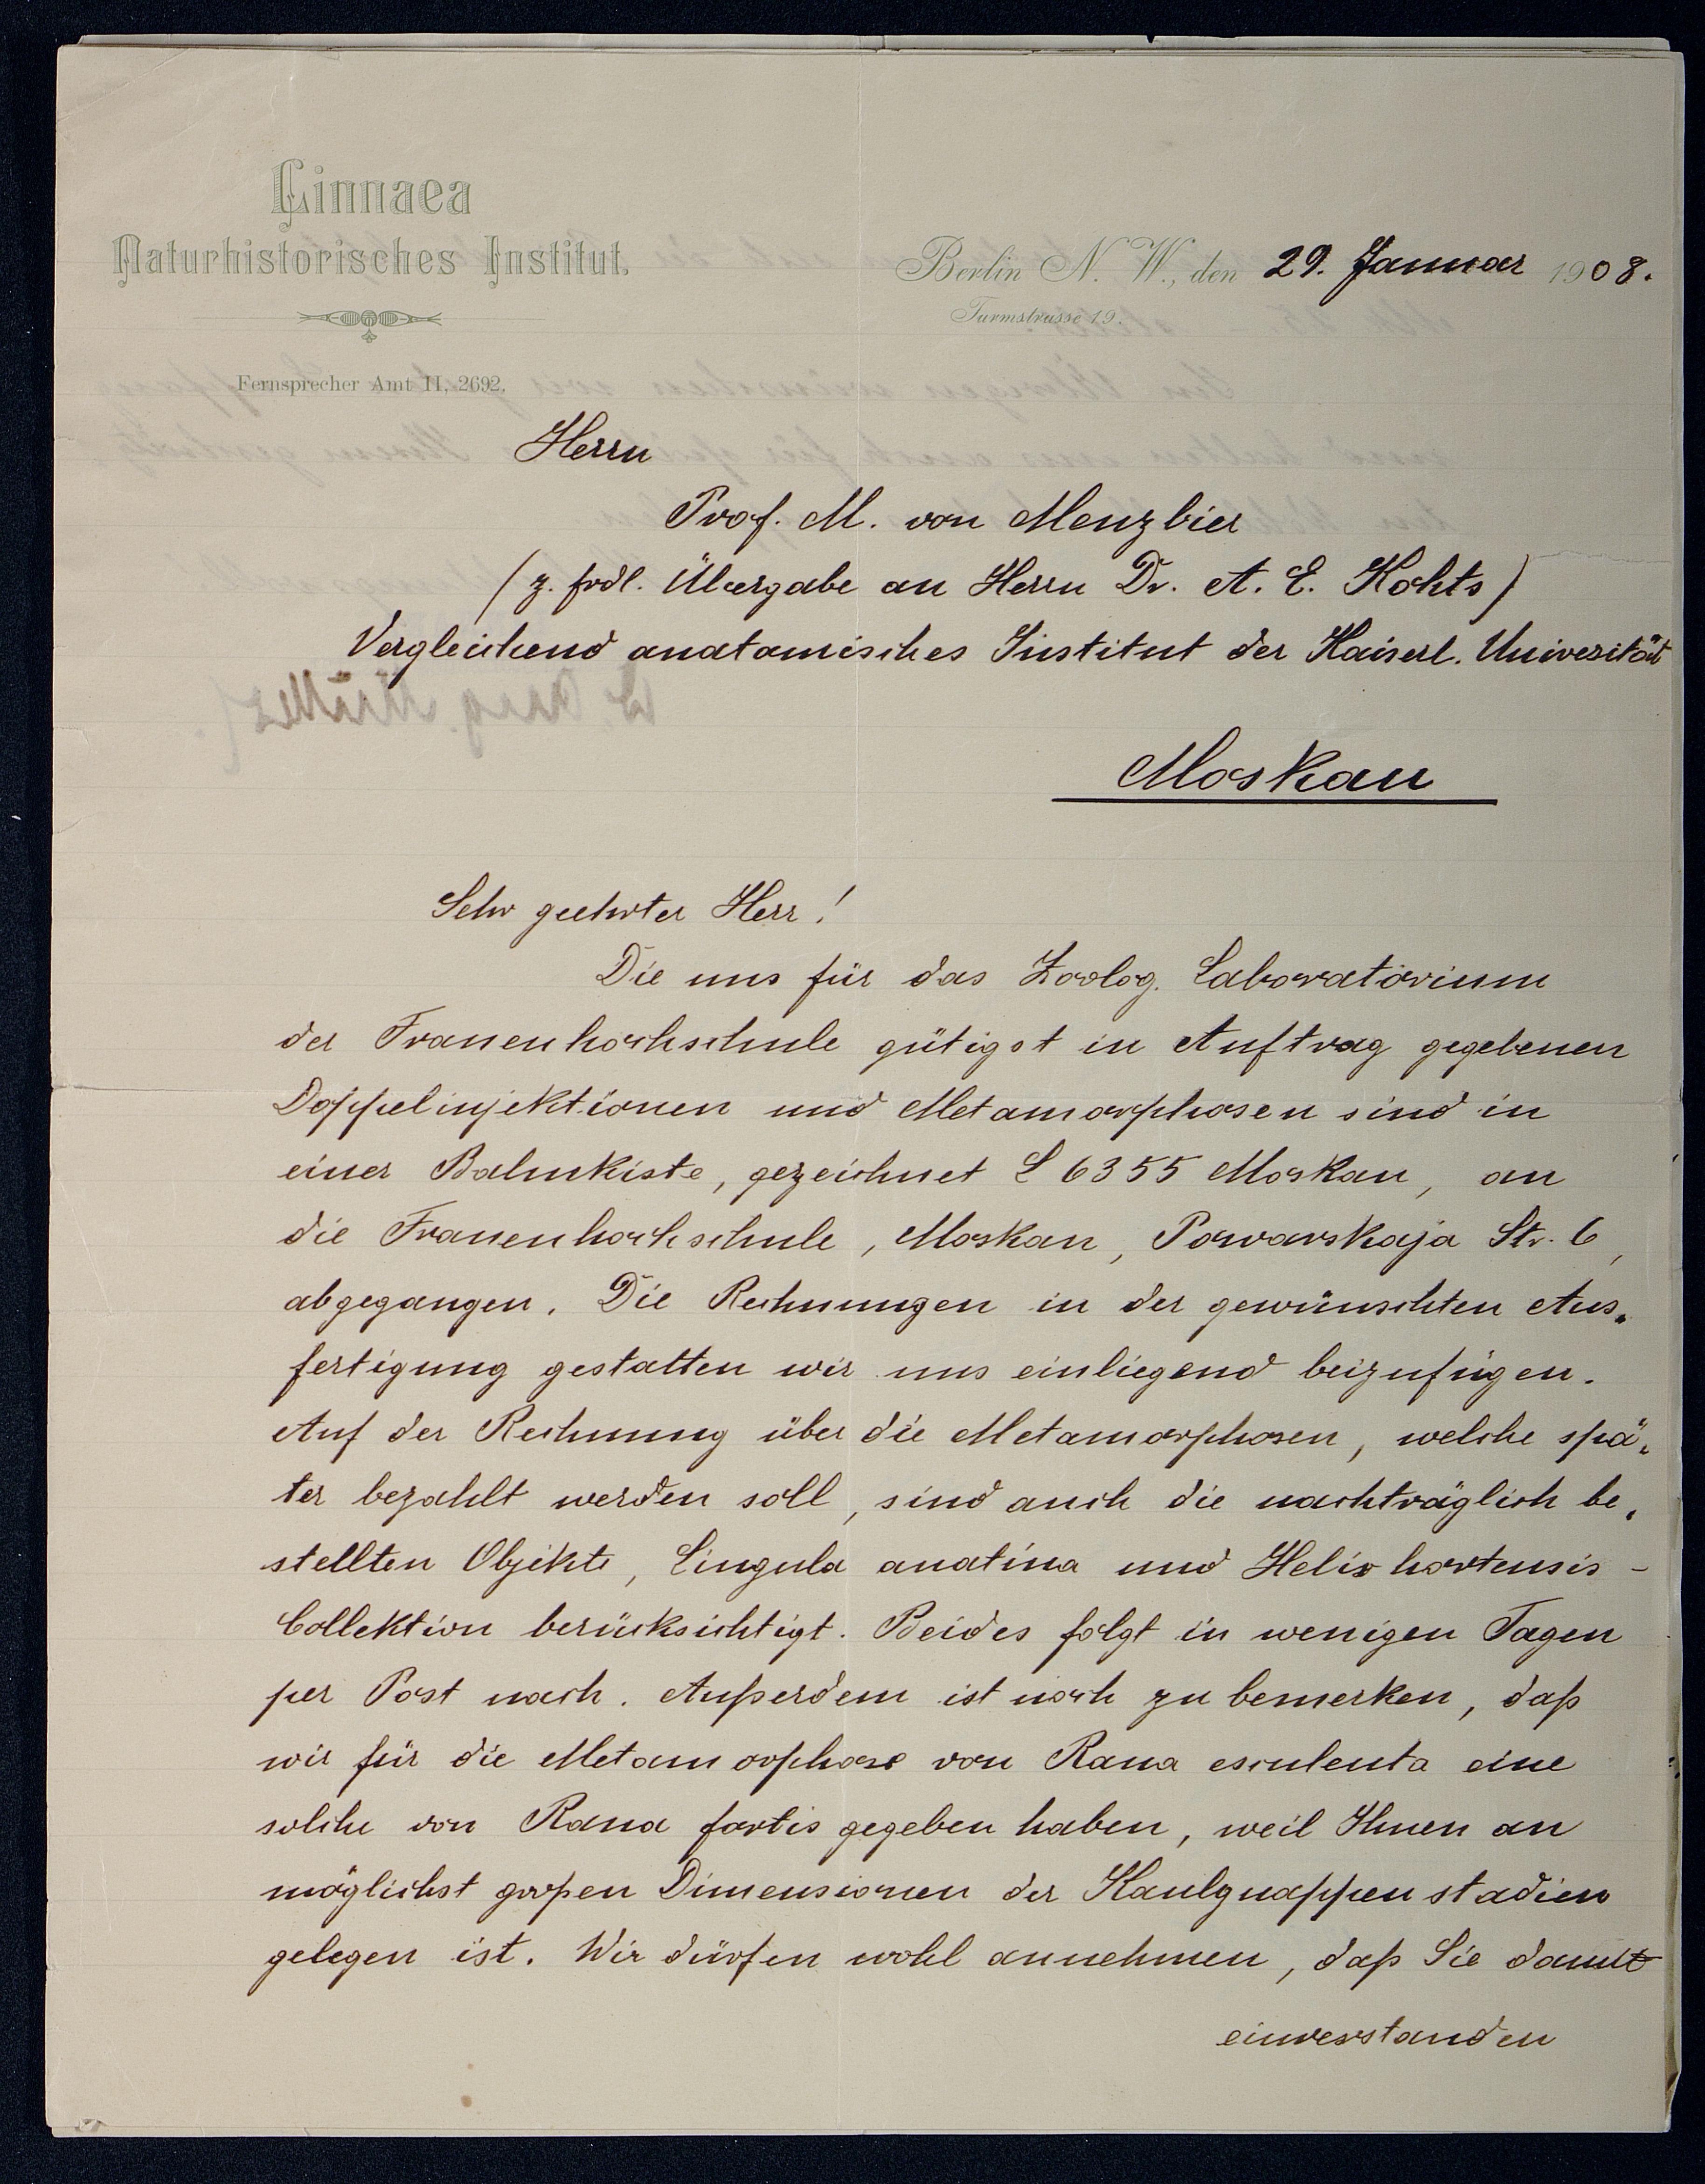 Linnaea
Naturhistorisches Institut.
Berlin N. W., den 29. Januar 1908.
Turmstrasse 19.
Fernsprecher Amt II, 2692.
Herrn
Prof. M. von Menzbier
(z. frdl. Übergabe an Herrn Dr. A. E. Kohts)
Vergleichend anatomisches Institut der Kaiserl. Univesität
Moskau
Sehr geehrter Herr!
Die uns für das Zoolog. Laboratorium
der Frauenhochschule gütigst in Auftrag gegebenen
Doppelinjektionen und Metamorphosen sind in
einer Bahnkiste, gezeichnet L 6355 Moskau, an
die Frauenhochschule, Moskau, Powarskaja Str. 6,
abgegangen. Die Rechnungen in der gewünschten Aus„
fertigung gestatten wir uns einliegend beizufügen.
Auf der Rechnung über die Metamorphosen, welche spä„
ter bezahlt werden soll, sind auch die nachträglich be„
stellten Objekte, Lingula anatina und Helix hortensis -
Collektion berücksichtigt. Beides folgt in wenigen Tagen
per Post nach. Außerdem ist noch zu bemerken, daß
wir für die Metamorphose von Rana esculenta eine
solche von Rana fortis gegeben haben, weil Ihnen an
möglichst großen Dimensionen der Kaulquappenstadien
gelegen ist. Wir dürfen wohl annehmen, daß Sie damit
einverstanden